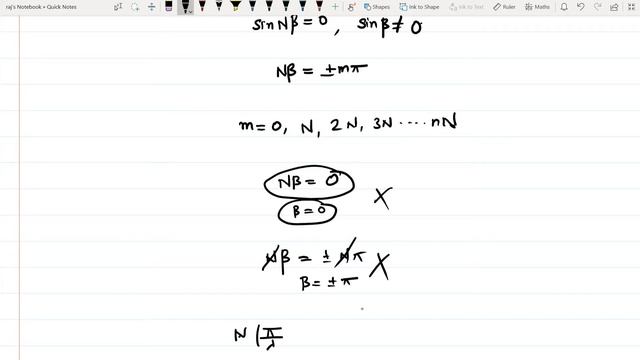 raj's Notebook » Quick Notes
Shapes
Ink to Shape
Ink to Text
Ruler
Maths
sin Nβ = 0, sin β ≠ 0
Nβ = ± mπ
m = 0, N, 2N, 3N ···· nN
Nβ = 0
β = 0 X
Nβ = ± Nπ X
β = ± π
N (π/λ